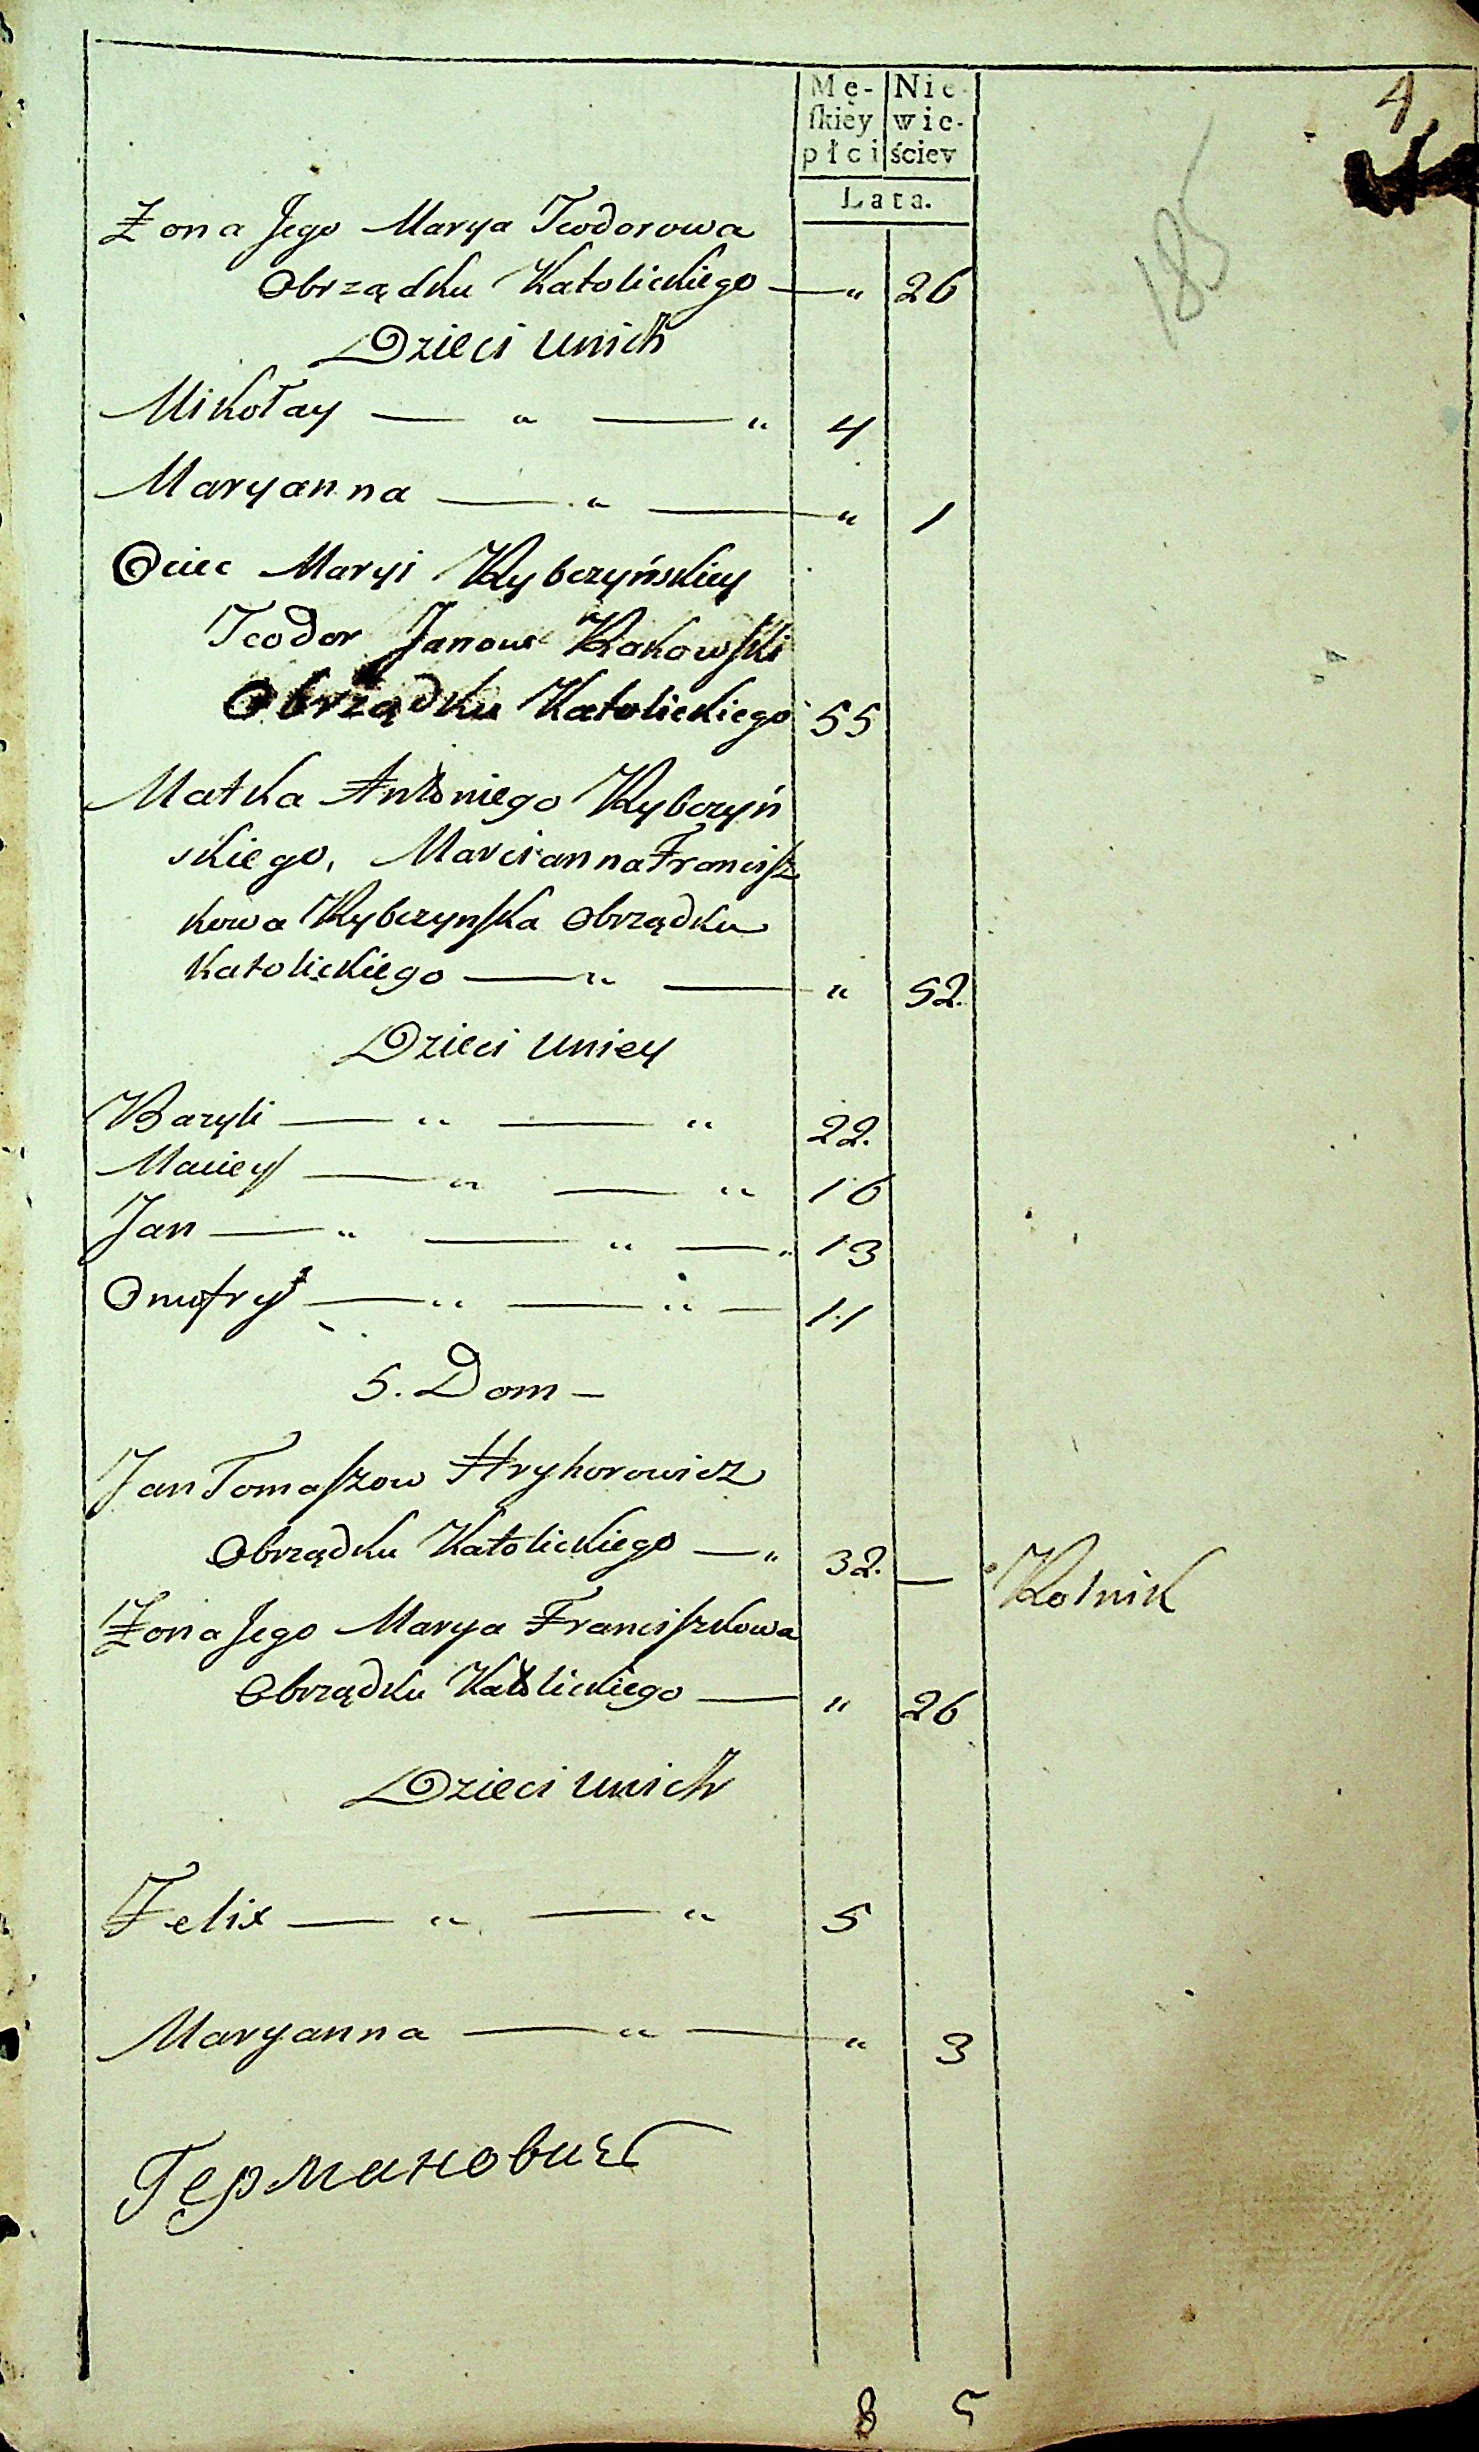 4
185
Mę- Nie-
ſkiey wie-
płci ściey
Lata.
Żona Jego Marya Teodorowa
Obrządku Katolickiego — „ 26
Dzieci unich
Mikołay — „ — „ 4
Maryanna — „ — „ 1
Ociec Maryi Rybczyńskiey
Teodor Janow Rakowſki
Obrządku Katolickiego 55
Matka Antoniego Rybczyń
skiego, Marcianna Franciſz
kowa Rybczynſka Obrządku
Katolickiego — „ — „ 52.
Dzieci uniey
Bazyli — „ — „ 22.
Maciey — „ — „ 16
Jan — „ — „ — „ 13
Onufry — „ — „ — 11
5. Dom —
Jan Tomaſzow Hryhorowicz
Obrządku Katolickiego — „ 32. — Rolnik
Żona Jego Marya Franciſzkowa
Obrządku Katolickiego — „ 26
Dzieci unich
Felix — „ — „ 5
Maryanna — „ — „ 3
Германович
8 5